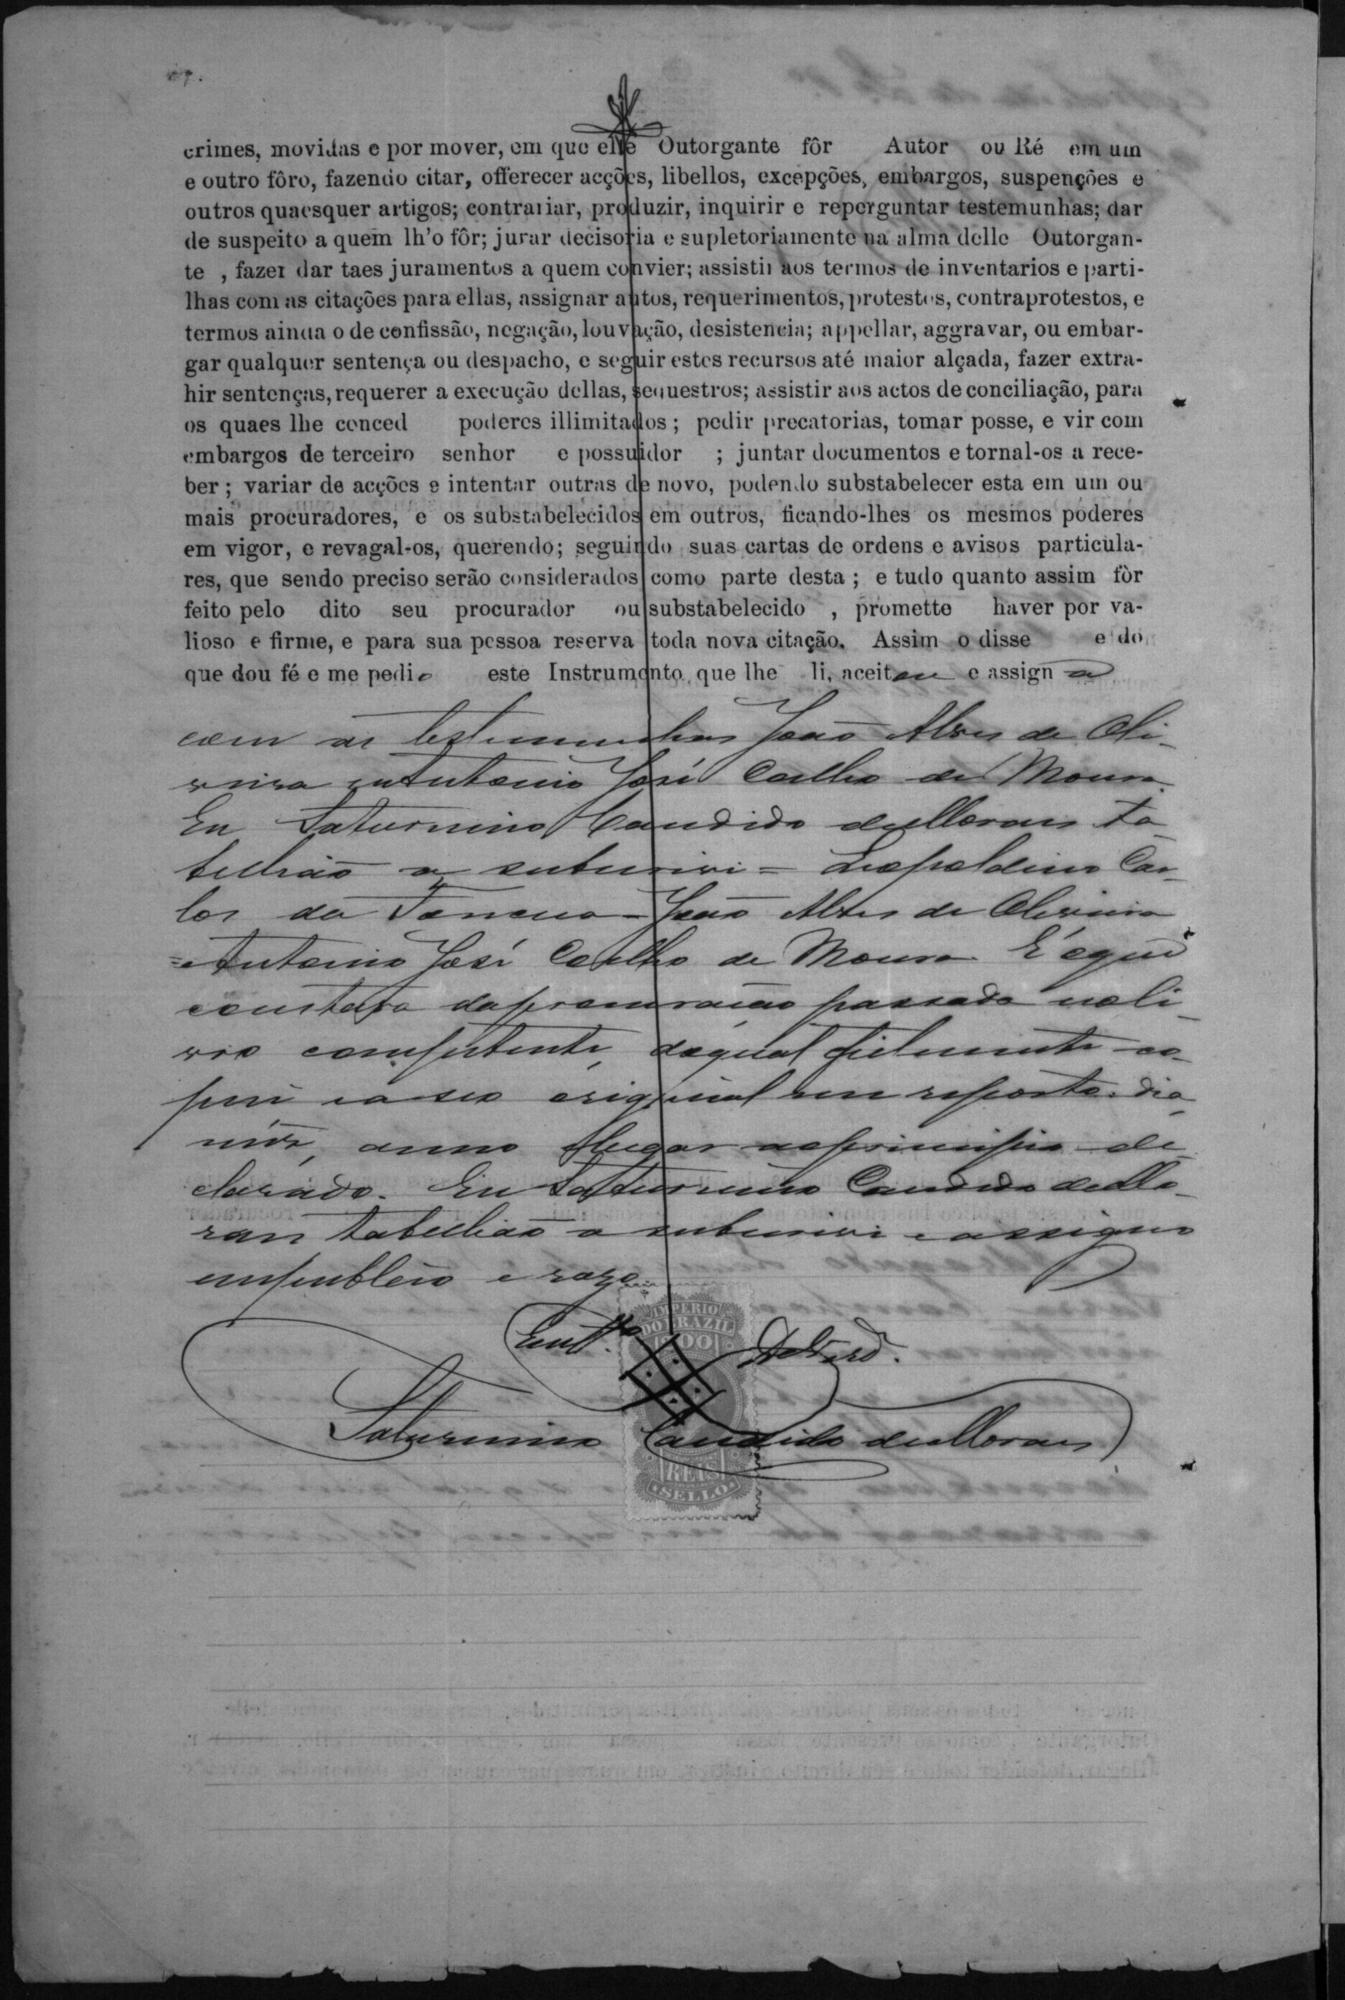 crimes, movidas e por mover, em que elle Outorgante fôr Autor ou Ré em um
e outro fôro, fazendo citar, offerecer acções, libellos, excepções, embargos, suspenções e
outros quaesquer artigos; contrariar, produzir, inquirir e reperguntar testemunhas; dar
de suspeito a quem lh'o fôr; jurar decisoria e supletoriamente na alma delle Outorgan-
te , fazer dar taes juramentos a quem convier; assistir aos termos de inventarios e parti-
lhas com as citações para ellas, assignar autos, requerimentos, protestos, contraprotestos, e
termos ainda o de confissão, negação, louvação, desistencia; appellar, aggravar, ou embar-
gar qualquer sentença ou despacho, e seguir estes recursos até maior alçada, fazer extra-
hir sentenças, requerer a execução dellas, sequestros; assistir aos actos de conciliação, para
os quaes lhe conced poderes illimitados ; pedir precatorias, tomar posse, e vir com
embargos de terceiro senhor e possuidor ; juntar documentos e tornal-os a rece-
ber ; variar de acções e intentar outras de novo, podendo substabelecer esta em um ou
mais procuradores, e os substabelecidos em outros, ficando-lhes os mesmos poderes
em vigor, e revagal-os, querendo; seguindo suas cartas de ordens e avisos particula-
res, que sendo preciso serão considerados como parte desta ; e tudo quanto assim fôr
feito pelo dito seu procurador ou substabelecido , promette haver por va-
lioso e firme, e para sua pessoa reserva toda nova citação. Assim o disse e do
que dou fé e me pedio este Instrumento que lhe li, aceitou e assigna
com as testemunhas João Alves de Oli-
veira e Antonio José Coelho de Moura
Eu Saturnino Candido de Moraes ta-
bellião o subscrivi = Leopoldino Car-
los da Fonceca - João Alves de Oliveira
= Antonio José Coelho de Moura. E' o que
constava da procuração passada no li-
vro competente, da qual fielmente co-
piei e ao seo original me reporto. Dia
mês, anno e lugar ao principio de-
clarado. Eu Saturnino Candido de Mo-
raes tabellião o subscrevi e assigno
em publico e razo
IMPERIO
DO BRAZIL
Em testº. da Verdª.
Saturnino Candido de Moraes
REIS
SELLO